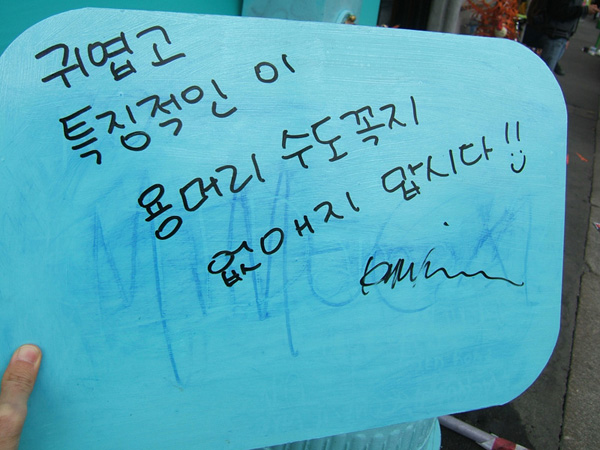 귀엽고
특징적인 이
용머리 수도꼭지
없애지 맙시다!!